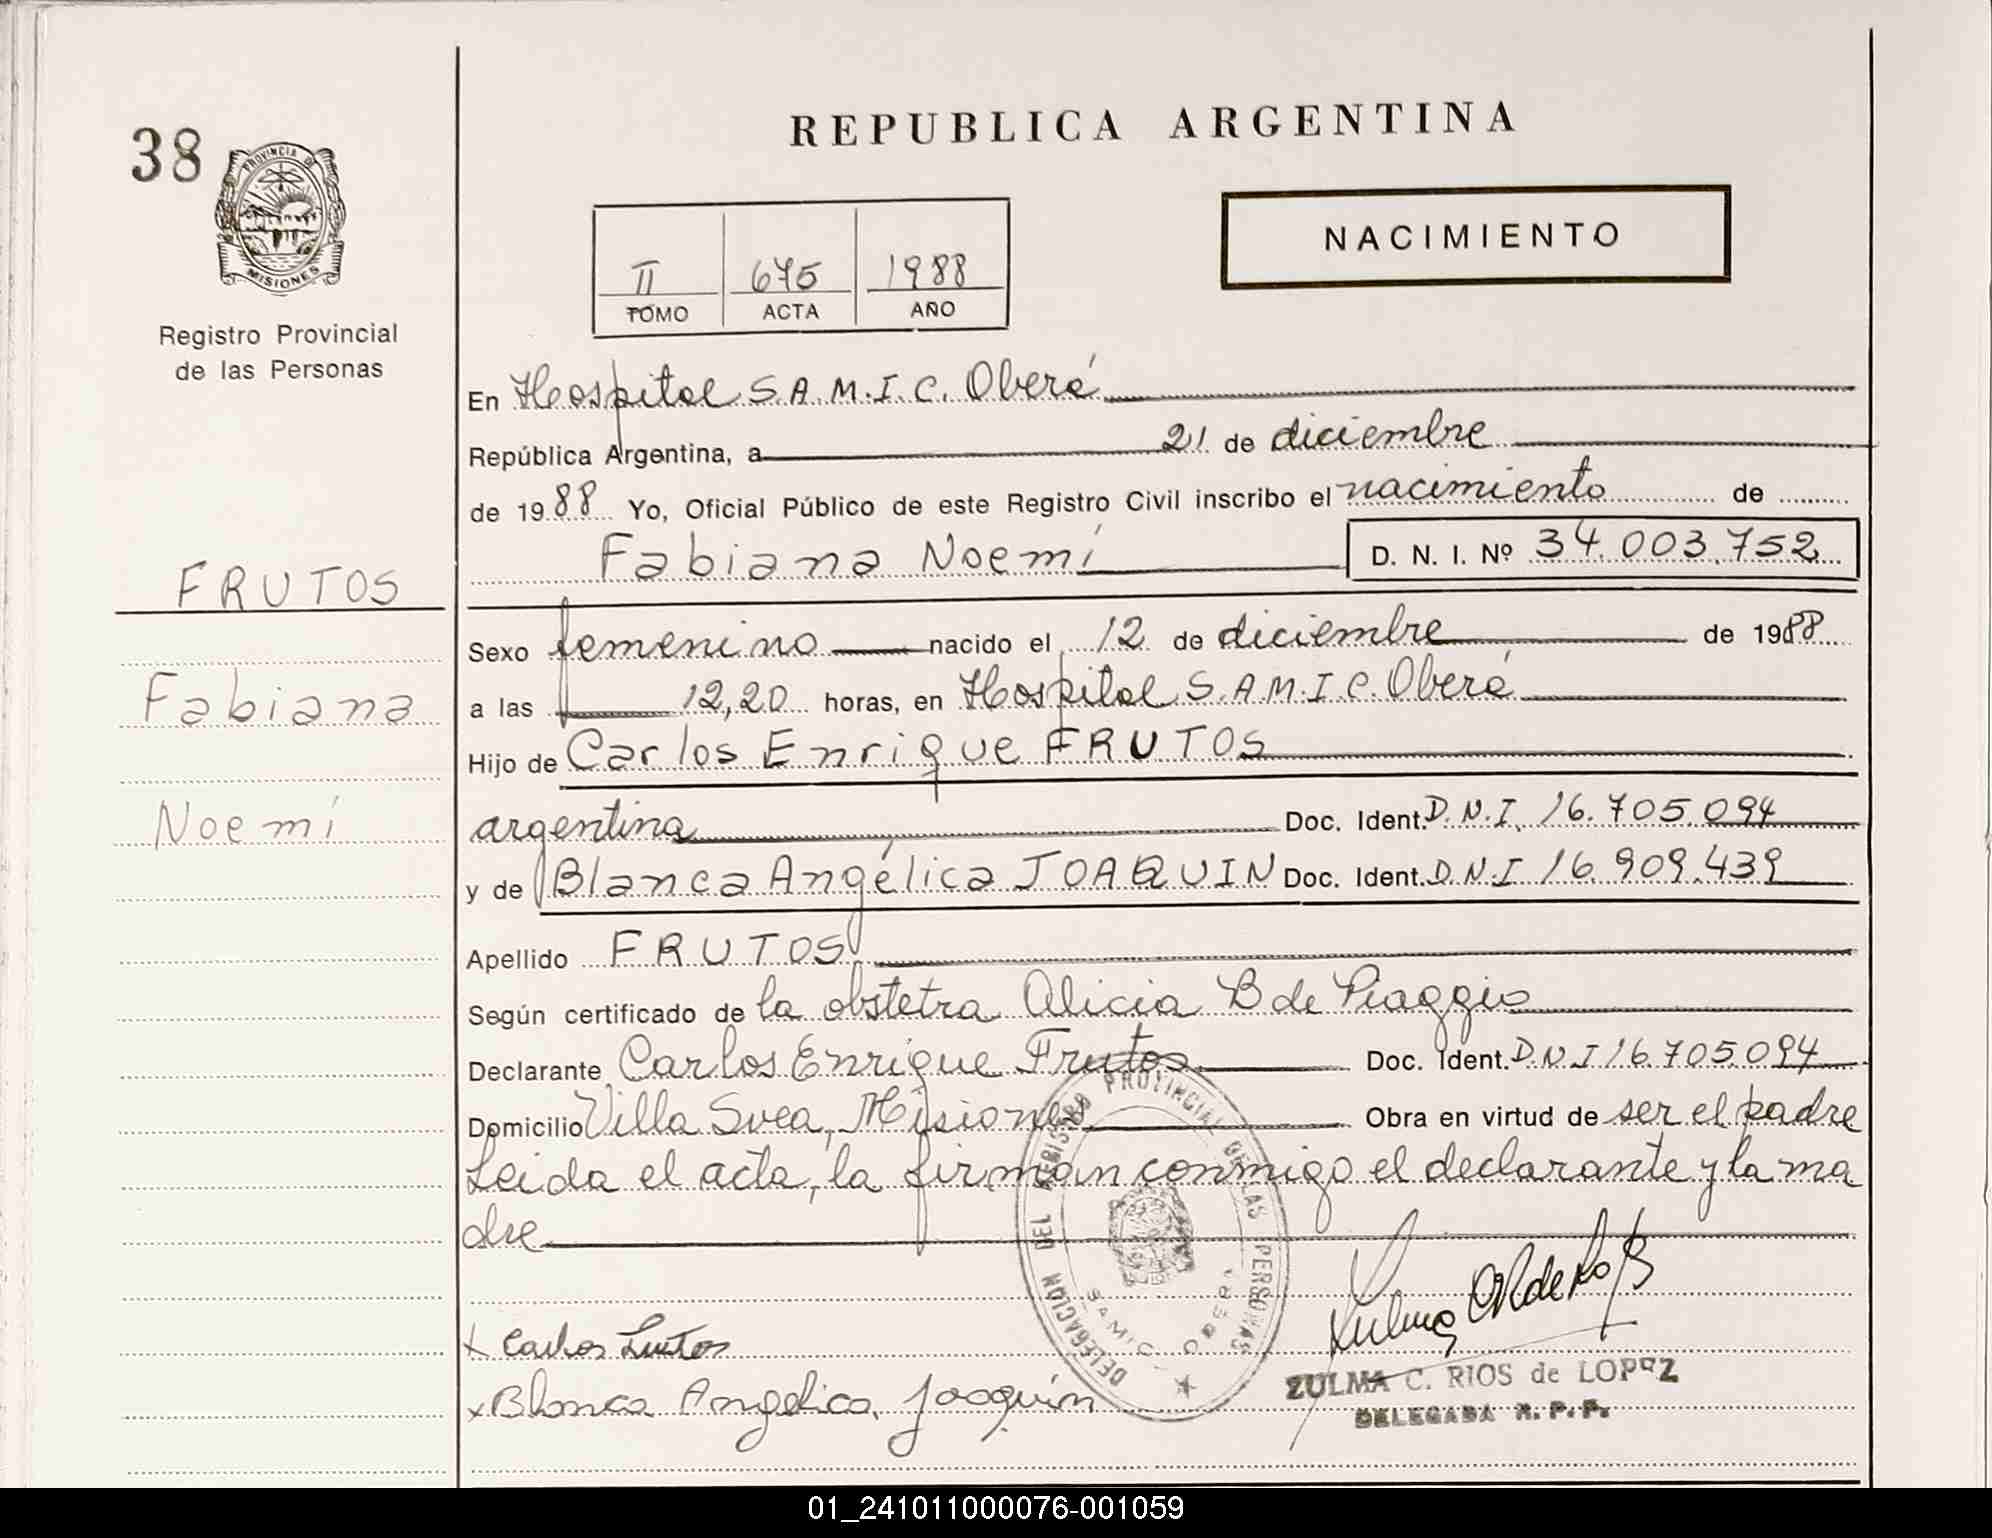 REPUBLICA ARGENTINA
38
PROVINCIA DE
MISIONES
Registro Provincial
de las Personas
NACIMIENTO
II 675 1988
TOMO ACTA AÑO
En Hospital S.A.M.I.C. Oberá
República Argentina, a 21 de diciembre
de 1988 Yo, Oficial Público de este Registro Civil inscribo el nacimiento de
Fabiana Noemí D. N. I. Nº 34.003.752
FRUTOS
Fabiana
Noemí
Sexo femenino nacido el 12 de diciembre de 1988
a las 12,20 horas, en Hospital S.A.M.I.C. Oberá
Hijo de Carlos Enrique FRUTOS
argentina Doc. Ident. D.N.I. 16.705.094
y de Blanca Angélica JOAQUIN Doc. Ident. D.N.I 16.909.439
Apellido FRUTOS
Según certificado de la obstetra Alicia B de Piaggio
Declarante Carlos Enrique Frutos Doc. Ident. D.N.I 16.705.094
Domicilio Villa Svea, Misiones Obra en virtud de ser el padre
Leida el acta, la firman conmigo el declarante y la ma
dre
DELEGACION DEL REGISTRO PROVINCIAL DE LAS PERSONAS
SAMIC - OBERA
x Carlos Frutos
x Blanca Angelica Joaquín
ZULMA C. RIOS de LOPEZ
DELEGADA R. P. P.
01_241011000076-001059